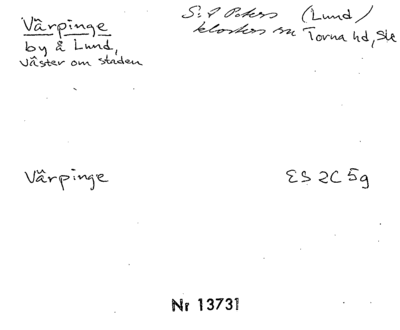 Värpinge
by å Lund,
väster om staden
S:t Peters (Lund)
klosters sn Torna hd, Ske
Värpinge
ES 2C 5g
Nr 13731